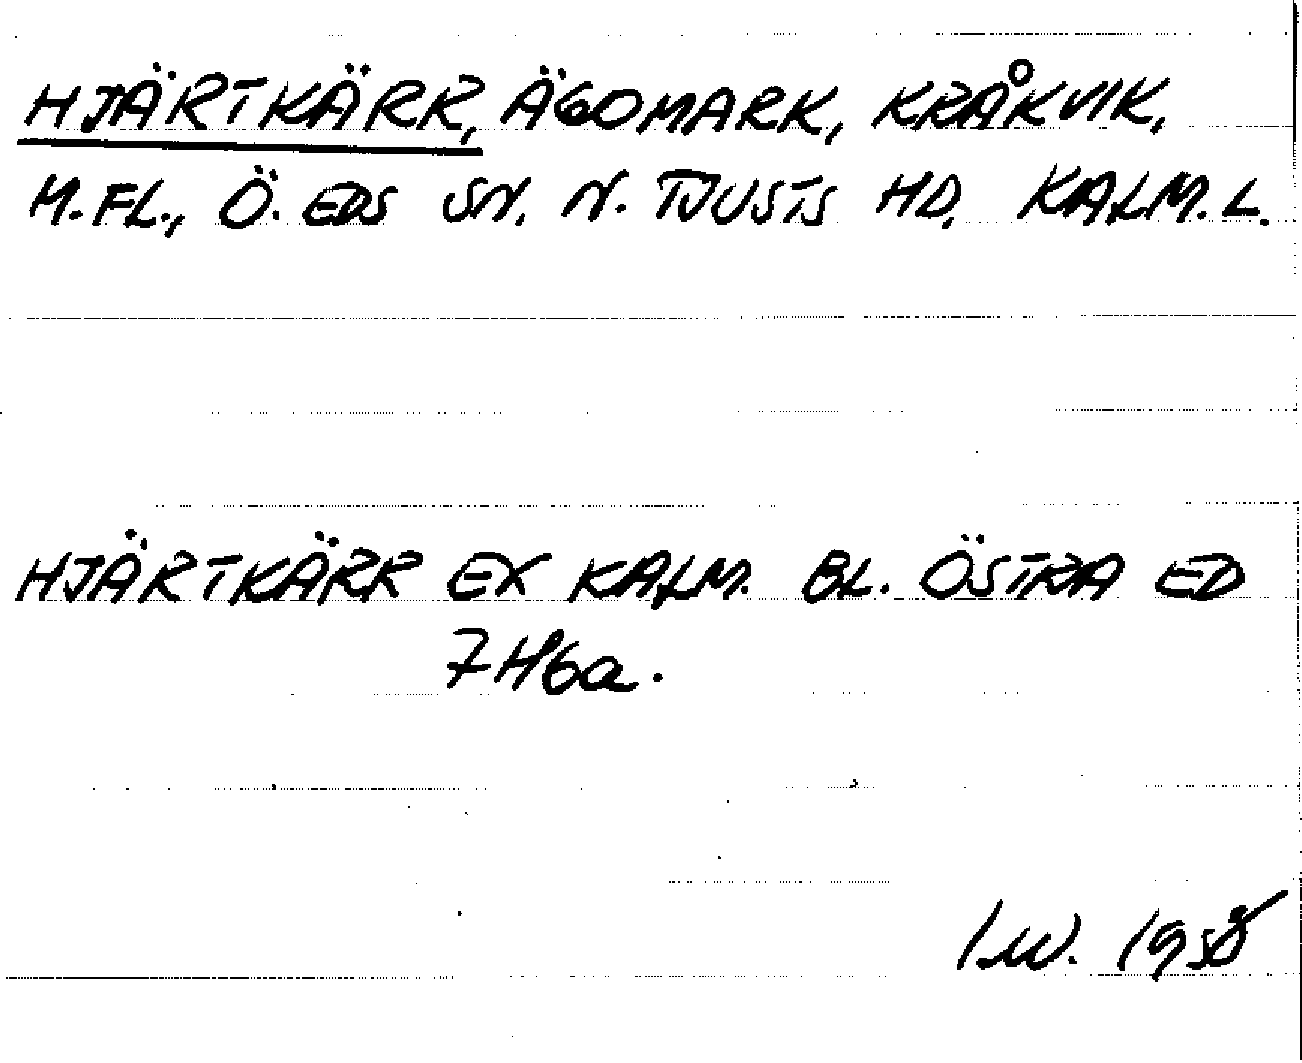 HJÄRTKÄRR, ÄGOMARK, KRÅKVIK,
M.FL., Ö. EDS SN. N. TJUSTS HD, KALM. L.
HJÄRTKÄRR EX KALM. BL. ÖSTRA ED
7H6a.
1958